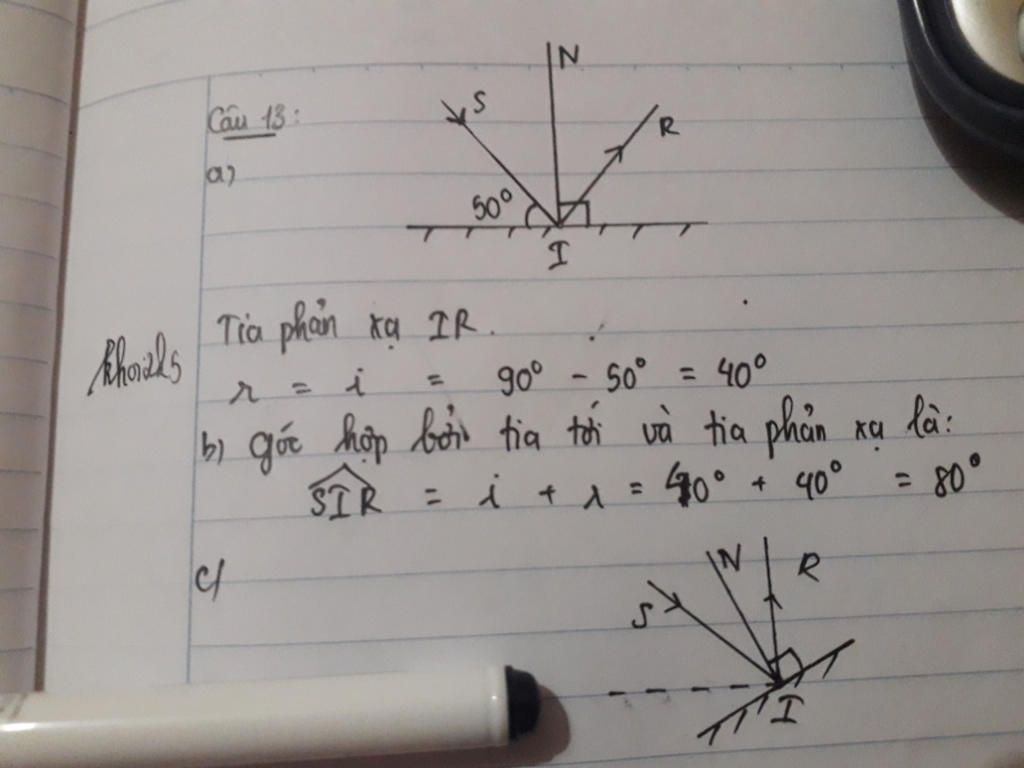 Câu 13:
a)
N
S
R
50°
I
Tia phản xạ IR.
r = i = 90° - 50° = 40°
b) góc hợp bởi tia tới và tia phản xạ là:
SIR = i + r = 40° + 40° = 80°
c)
N
R
S
I